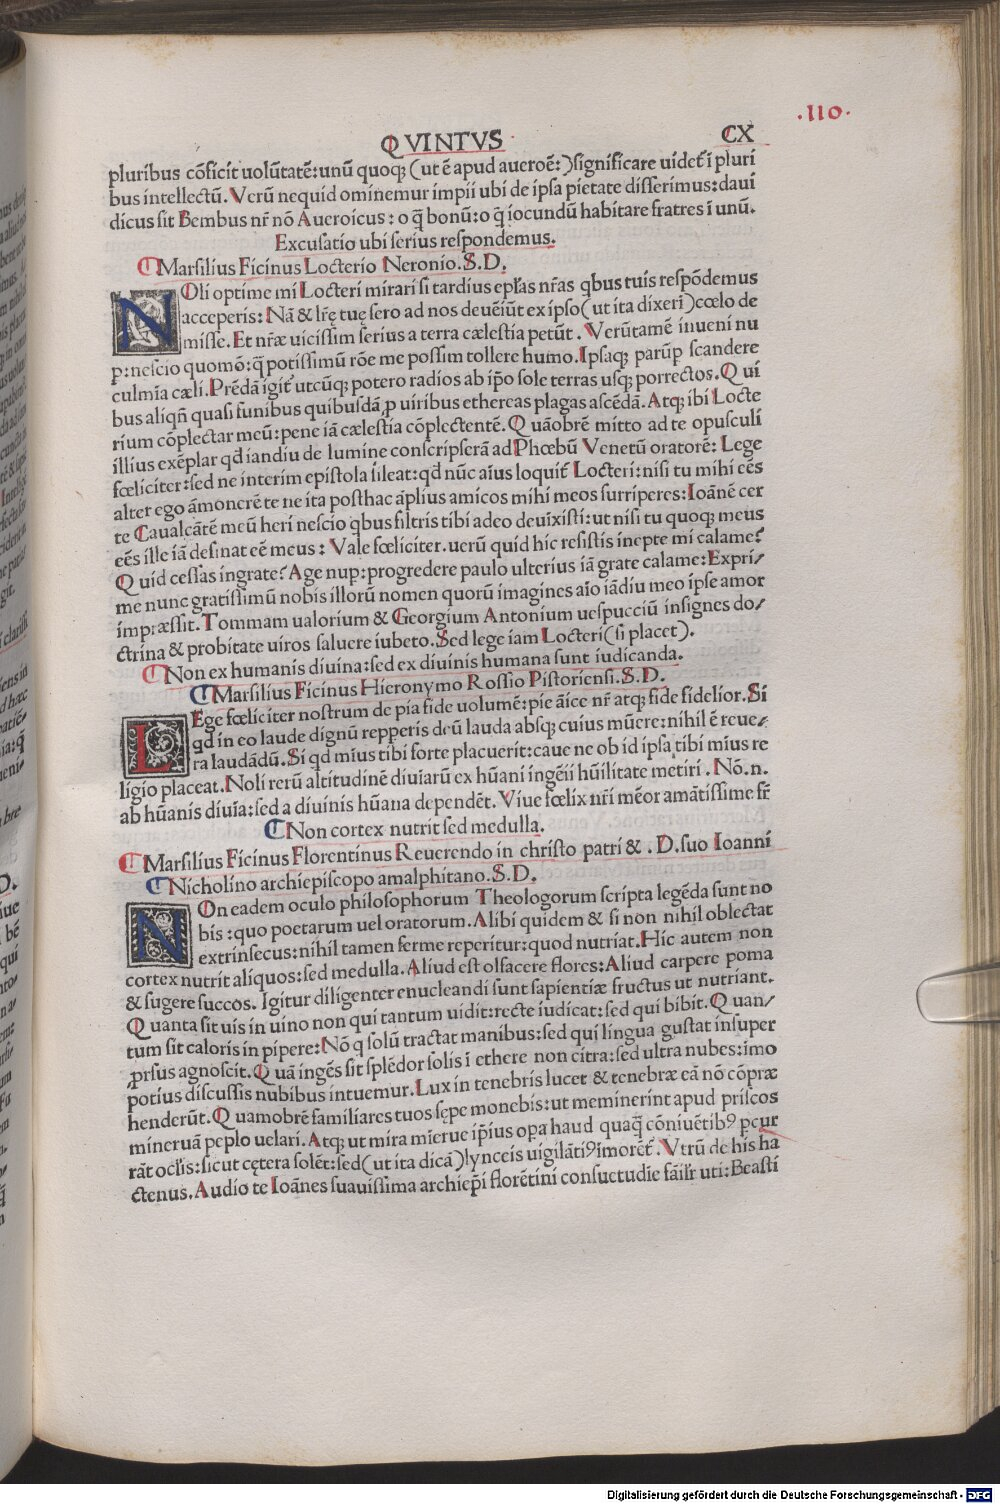 .110.
QVINTVS
CX
pluribus cōficit uolūtatē:unū quoq; (ut ē apud aueroē:)significare uidet̄ ī pluri
bus intellectū. Verū nequid ominemur impii ubi de ipsa pietate disserimus:daui
dicus sit Bembus nr̄ nō Aueroicus: o q̄ bonū:o q̄ iocundū habitare fratres ī unū.
Excusatio ubi serius respondemus.
⸿Marsilius Ficinus Locterio Neronio.S.D.
NOli optime mi Locteri mirari si tardius epl̄as nr̄as qbus tuis respōdemus
acceperis: Nā & lr̄ę tuę sero ad nos deuēiūt ex ipso(ut ita dixeri)cœlo de
misse. Et nr̄æ uicissim serius a terra cælestia petūt. Verūtamē inueni nu
p:nescio quomō:q̄ potissimū rōe me possim tollere humo.Ipsaq; parūp scandere
culmīa cæli.Prēdā igit̄ utcūq; potero radios ab ip̄o sole terras usq; porrectos.Qui
bus aliqn̄ quasi funibus quibusdā ꝓ uiribus ethereas plagas ascēdā.Atq; ibi Locte
rium cōplectar meū:pene iā cælestia cōplectentē. Quāobrē mitto ad te opusculi
illius exēplar qd iandiu de lumine conscripserā ad Phœbū Venetū oratorē: Lege
fœliciter:sed ne interim epistola sileat:qd nūc aīus loquit̄ Locteri:nisi tu mihi eēs
alter ego āmonerē te ne ita posthac āplius amicos mihi meos surriperes:Ioānē cer
te Caualcātē meū heri nescio qbus filtris tibi adeo deuixisti:ut nisi tu quoq; meus
eēs ille iā desinat eē meus: Vale fœliciter.uerū quid hic resistis inepte mi calame?
Quid cessas ingrate? Age nup:progredere paulo ulterius iā grate calame:Expri/
me nunc gratissimū nobis illorū nomen quorū imagines aīo iādiu meo ipse amor
impræssit.Tommam ualorium & Georgium Antonium uespucciū insignes do/
ctrina & probitate uiros saluere iubeto.Sed lege iam Locteri(si placet).
⸿Non ex humanis diuina:sed ex diuinis humana sunt iudicanda.
⸿Marsilius Ficinus Hieronymo Rossio Pistoriensi.S.D.
LEge fœliciter nostrum de pia fide uolumē:pie āice nr̄ atq; fide fidelior.Si
qd in eo laude dignū repperis deū lauda absq; cuius mūere:nihil ē reue/
ra laudādū.Si qd mius tibi forte placuerit:caue ne ob id ipsa tibi mius re
ligio placeat.Noli rerū altitudinē diuiarū ex hūani ingēii hūilitate metiri. Nō.n.
ab hūanis diuia:sed a diuinis hūana dependēt. Viue fœlix nr̄i mēor amātissime fr̄
⸿Non cortex nutrit sed medulla.
⸿Marsilius Ficinus Florentinus Reuerendo in christo patri &. D.suo Ioanni
⸿Nicholino archiepiscopo amalphitano.S.D.
NOn eadem oculo philosophorum Theologorum scripta legēda sunt no
bis:quo poetarum uel oratorum.Alibi quidem & si non nihil oblectat
extrinsecus:nihil tamen ferme reperitur:quod nutriat.Hic autem non
cortex nutrit aliquos:sed medulla.Aliud est olfacere flores:Aliud carpere poma
& sugere succos. Igitur diligenter enucleandi sunt sapientiæ fructus ut nutriant.
Quanta sit uis in uino non qui tantum uidit:recte iudicat:sed qui bibit.Quan/
tum sit caloris in pipere:Nō q solū tractat manibus:sed qui lingua gustat insuper
ꝓrsus agnoscit.Quā ingēs sit splēdor solis ī ethere non citra:sed ultra nubes:imo
potius discussis nubibus intuemur.Lux in tenebris lucet & tenebræ eā nō cōpræ
henderūt.Quamobrē familiares tuos sępe monebis:ut meminerint apud priscos
mineruā peplo uelari.Atq; ut mira mīerue ip̄ius oꝑa haud quaq̄ cōniuētibꝰ ꝑcur
rāt ocl̄is:sicut cętera solēt:sed(ut ita dicā)lynceis uigilātiꝰ īmorēt̄.Vtrū de his ha
ctenus.Audio te Ioānes suauissima archiep̄i florētini consuetudīe fāilr̄ uti:Beasti
Digitalisierung gefördert durch die Deutsche Forschungsgemeinschaft - DFG